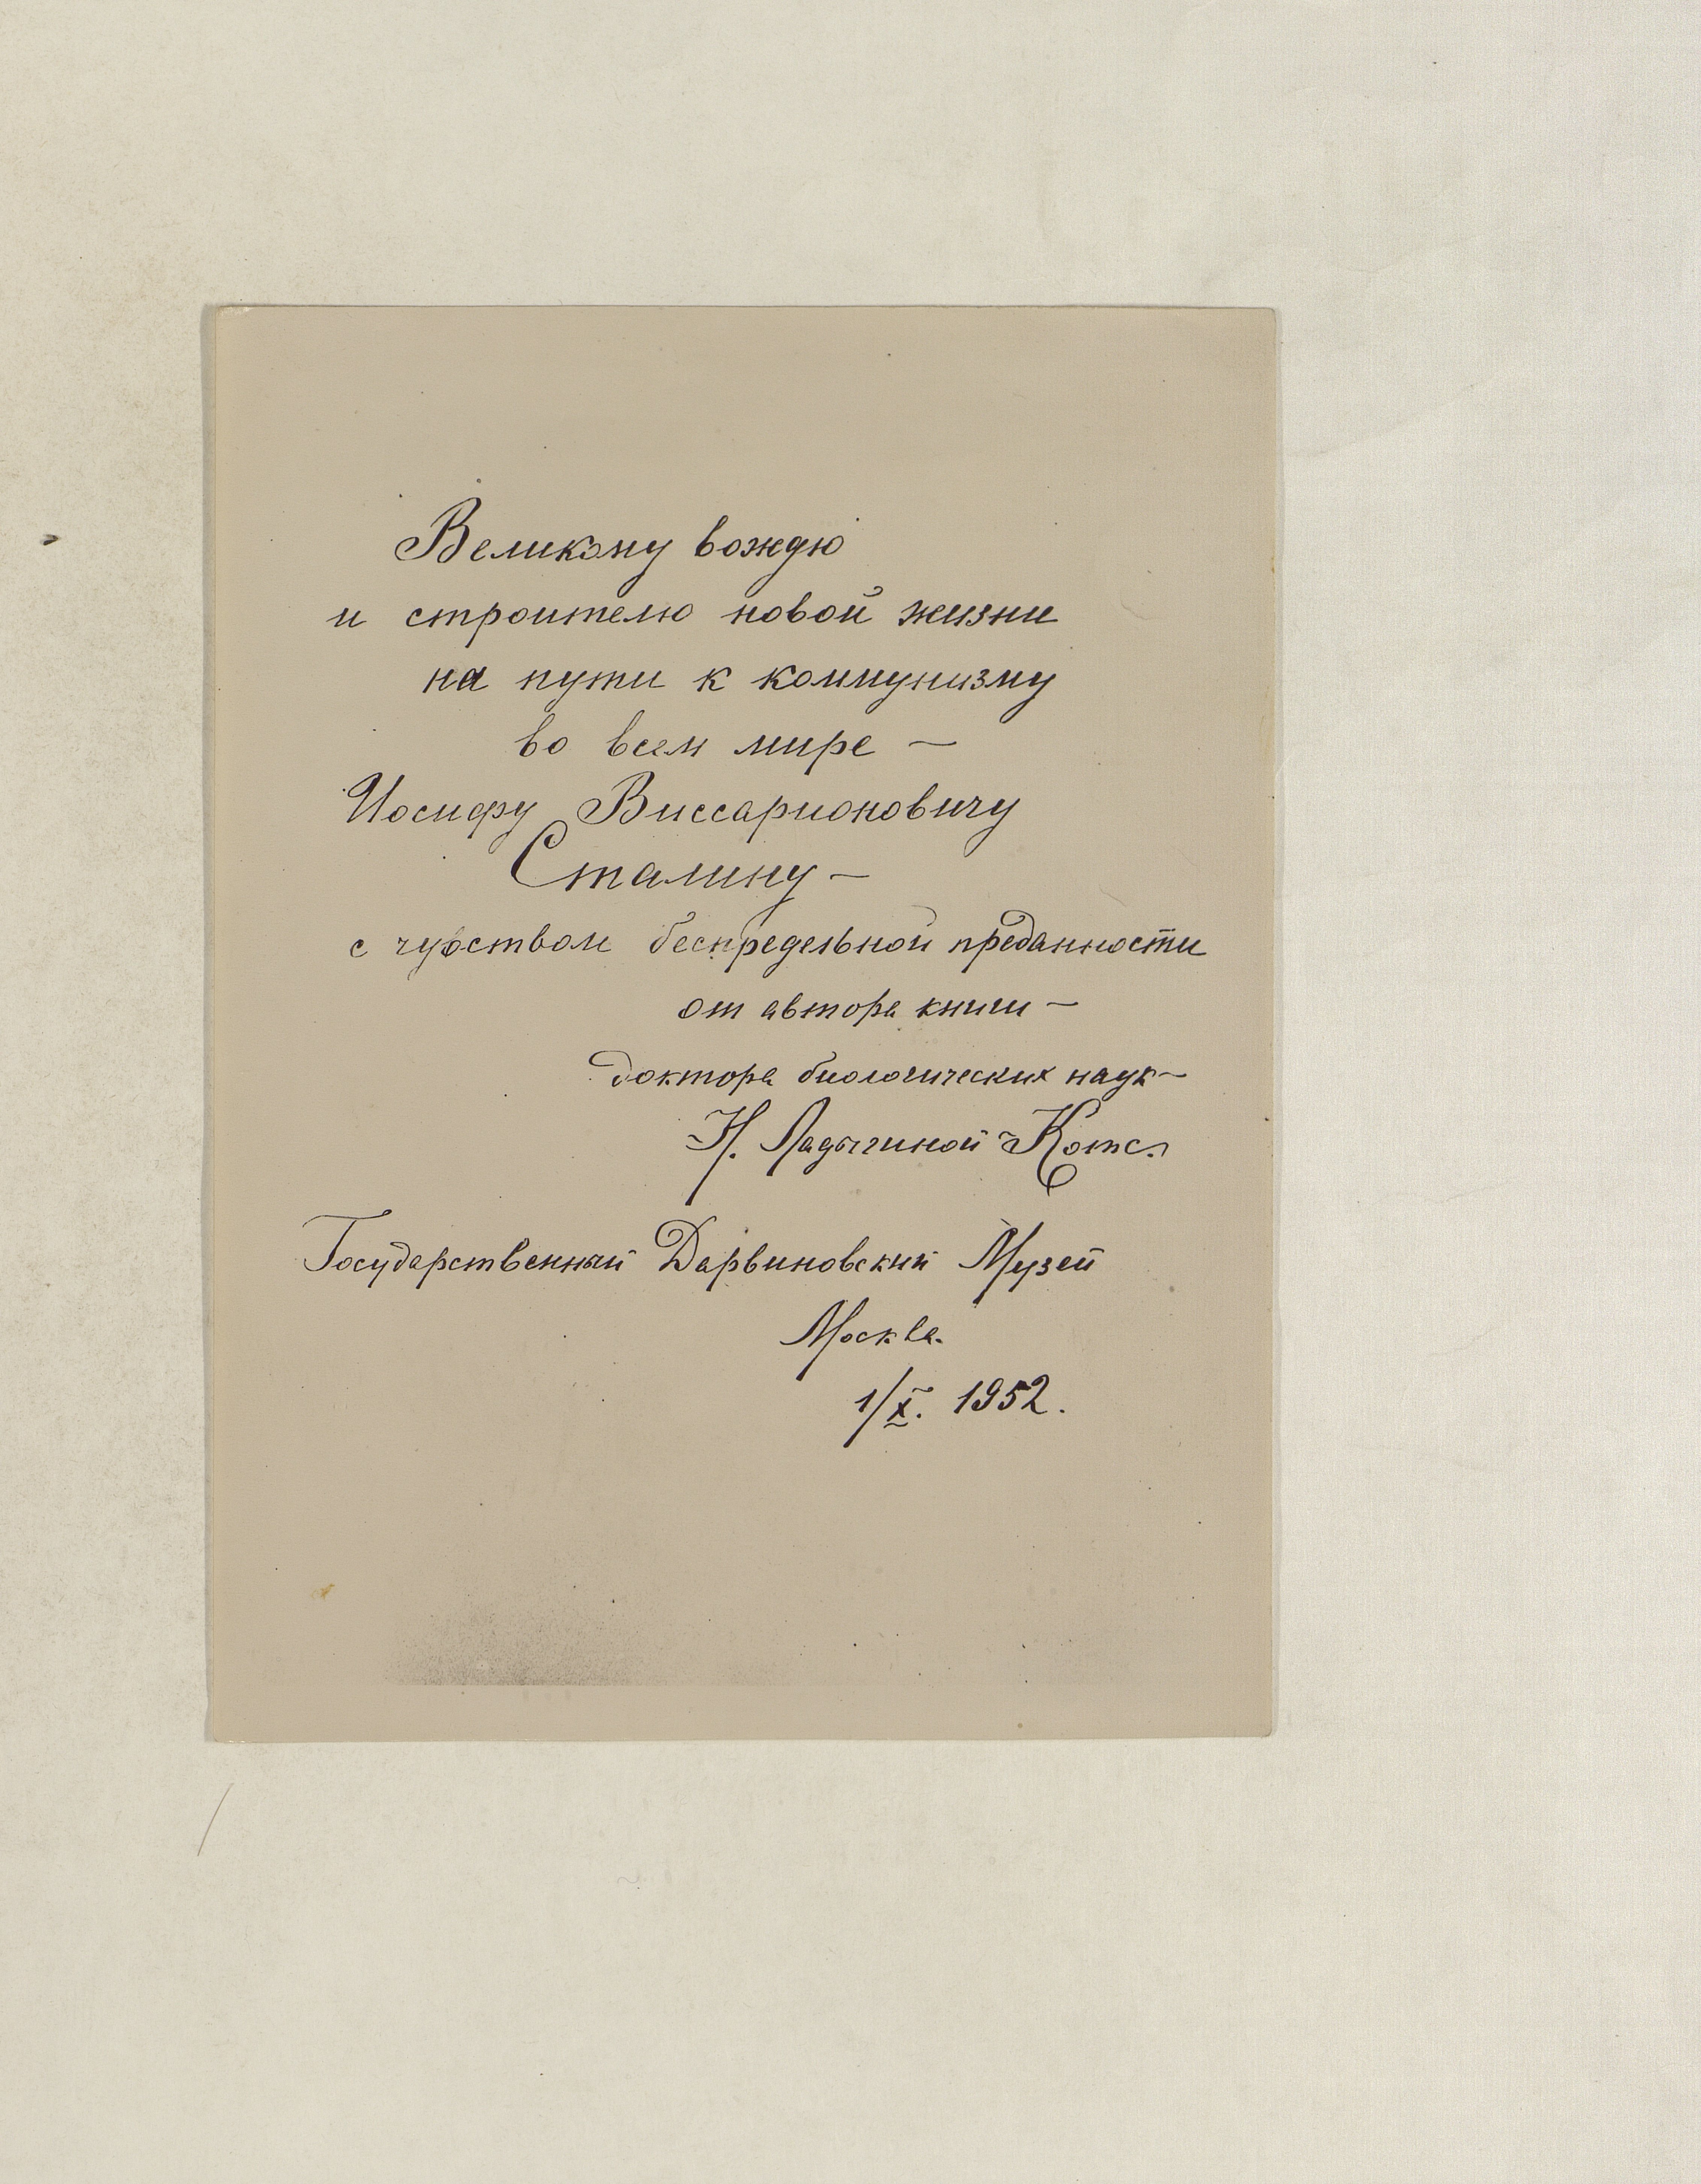 Великому вождю
и строителю новой жизни
на пути к коммунизму
во всем мире —
Иосифу Виссарионовичу
Сталину —
с чувством беспредельной преданности
от автора книги —
доктора биологических наук —
Н. Ладыгиной-Котс.
Государственный Дарвиновский Музей
Москва.
1/X. 1952.